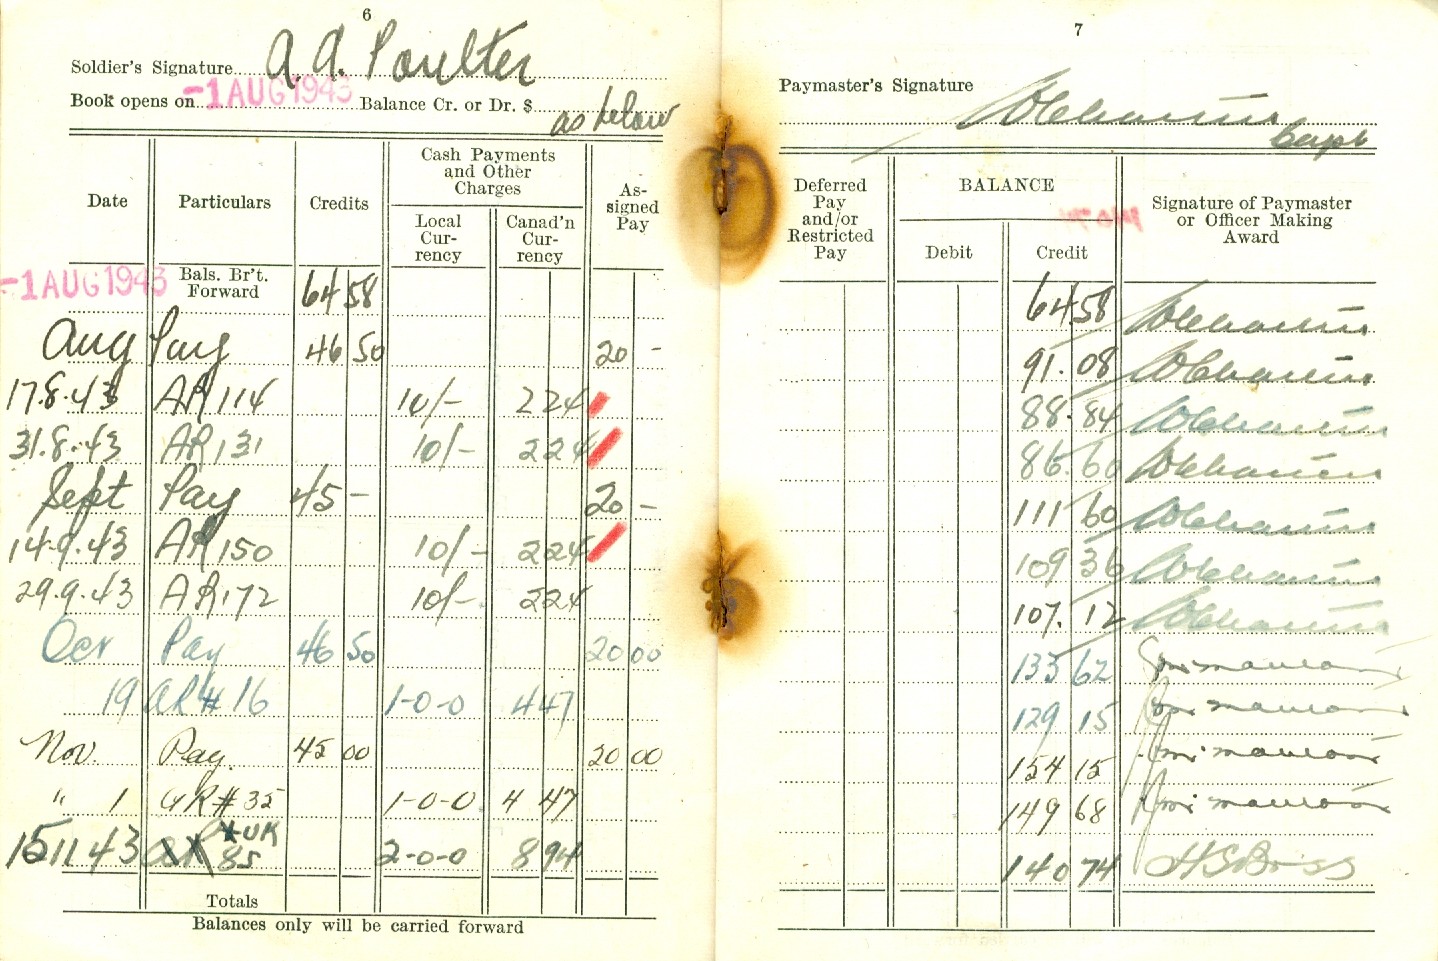 6
Soldier's Signature A. A. Poulter
Book opens on -1 AUG 1943 Balance Cr. or Dr. $ as below
Date Particulars Credits Cash Payments and Other Charges Local Currency Canad'n Currency Assigned Pay
-1 AUG 1943 Bals. Br't. Forward 64 58
Aug Pay 46 50 20 -
17.8.43 AR 114 10/- 2 24
31.8.43 AR 131 10/- 2 24
Sept Pay 45 - 20 -
14.9.43 AR 150 10/- 2 24
29.9.43 AR 172 10/- 2 24
Oct Pay 46 50 20 00
19 AR # 16 1-0-0 4 47
Nov. Pay. 45 00 20 00
" 1 AR # 35 1-0-0 4 47
15 11 43 AR *UK 85 2-0-0 8 94
Totals
Balances only will be carried forward
7
Paymaster's Signature
Capt
Deferred Pay and/or Restricted Pay BALANCE Debit Credit Signature of Paymaster or Officer Making Award
64 58
91.08
88.84
86.60
111 60
109 36
107.12
133 62
129 15
154 15
149 68
140 74